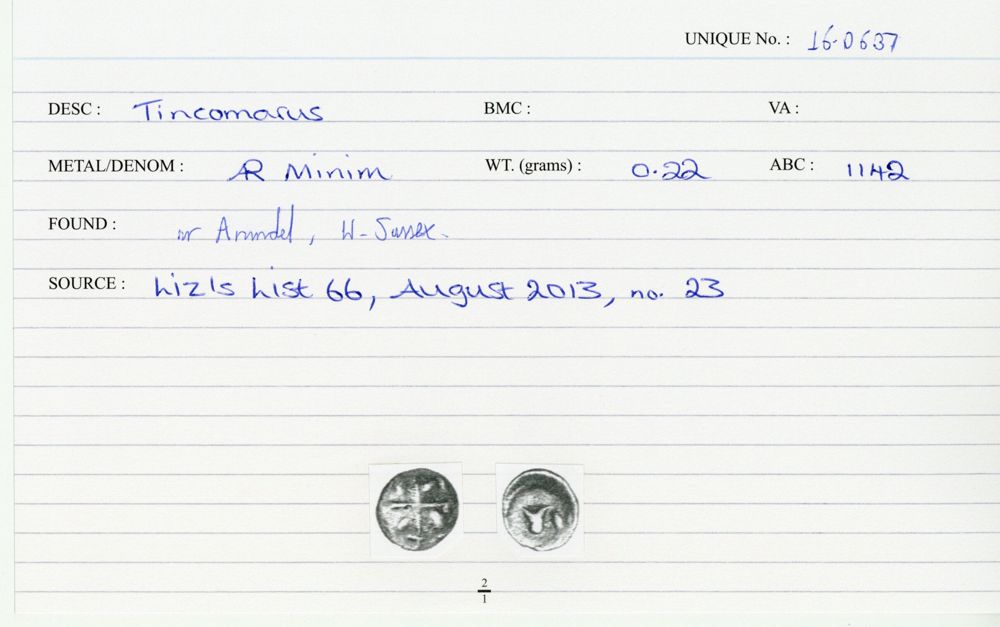 UNIQUE No. : 16-0637
DESC : Tincomarus BMC : VA :
METAL/DENOM : AR Minim WT. (grams) : 0.22 ABC : 1142
FOUND : nr Arundel, W-Sussex.
SOURCE : Liz's List 66, August 2013, no. 23
2
1